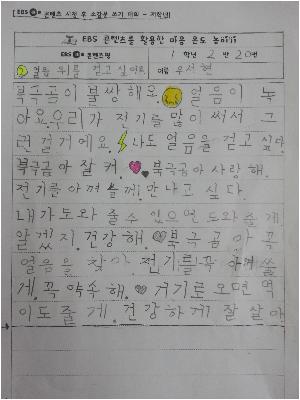 EBS 콘텐츠 시청 후 소감문 쓰기 대회 - 저학년
EBS 콘텐츠를 활용한 마음 온도 높이기
EBS 콘텐츠명 1 학년 2 반 20번
얼음 위를 걷고 싶어요 이름 우서현
북극곰이 불쌍해요. 얼음이 녹
아요. 우리가 전기를 많이 써서 그
런 걸거에요. 나도 얼음을 걷고 싶다.
북극곰아 잘 커. 북극곰아 사랑해.
전기를 아껴 쓸께. 만나고 싶다.
내가 도와 줄 수 있으면 도와줄게
알겠지. 건강해. 북극곰아 꼭
얼음을 찾아. 전기를 꼭 아껴 쓸
게. 꼭 약속해. 거기로 오면 먹
이도 줄게. 건강하게 잘 살아